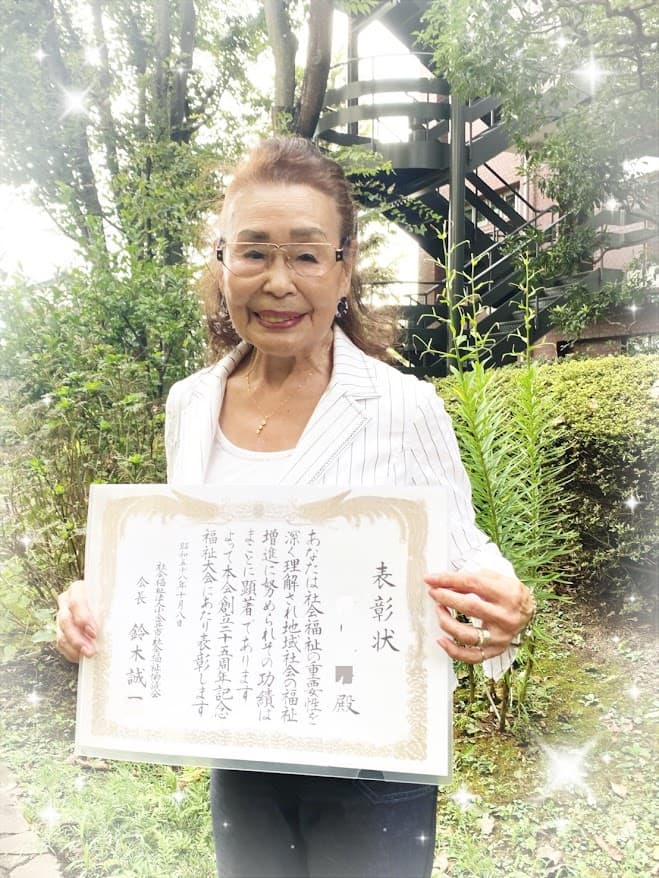 表彰状
殿
あなたは社会福祉の重要性を
深く理解され地域社会の福祉
増進に努められその功績は
まことに顕著であります
よって本会創立二十五周年記念
福祉大会にあたり表彰します
昭和五十八年十月八日
社会福祉法人小金井市社会福祉協議会
会長 鈴木誠一